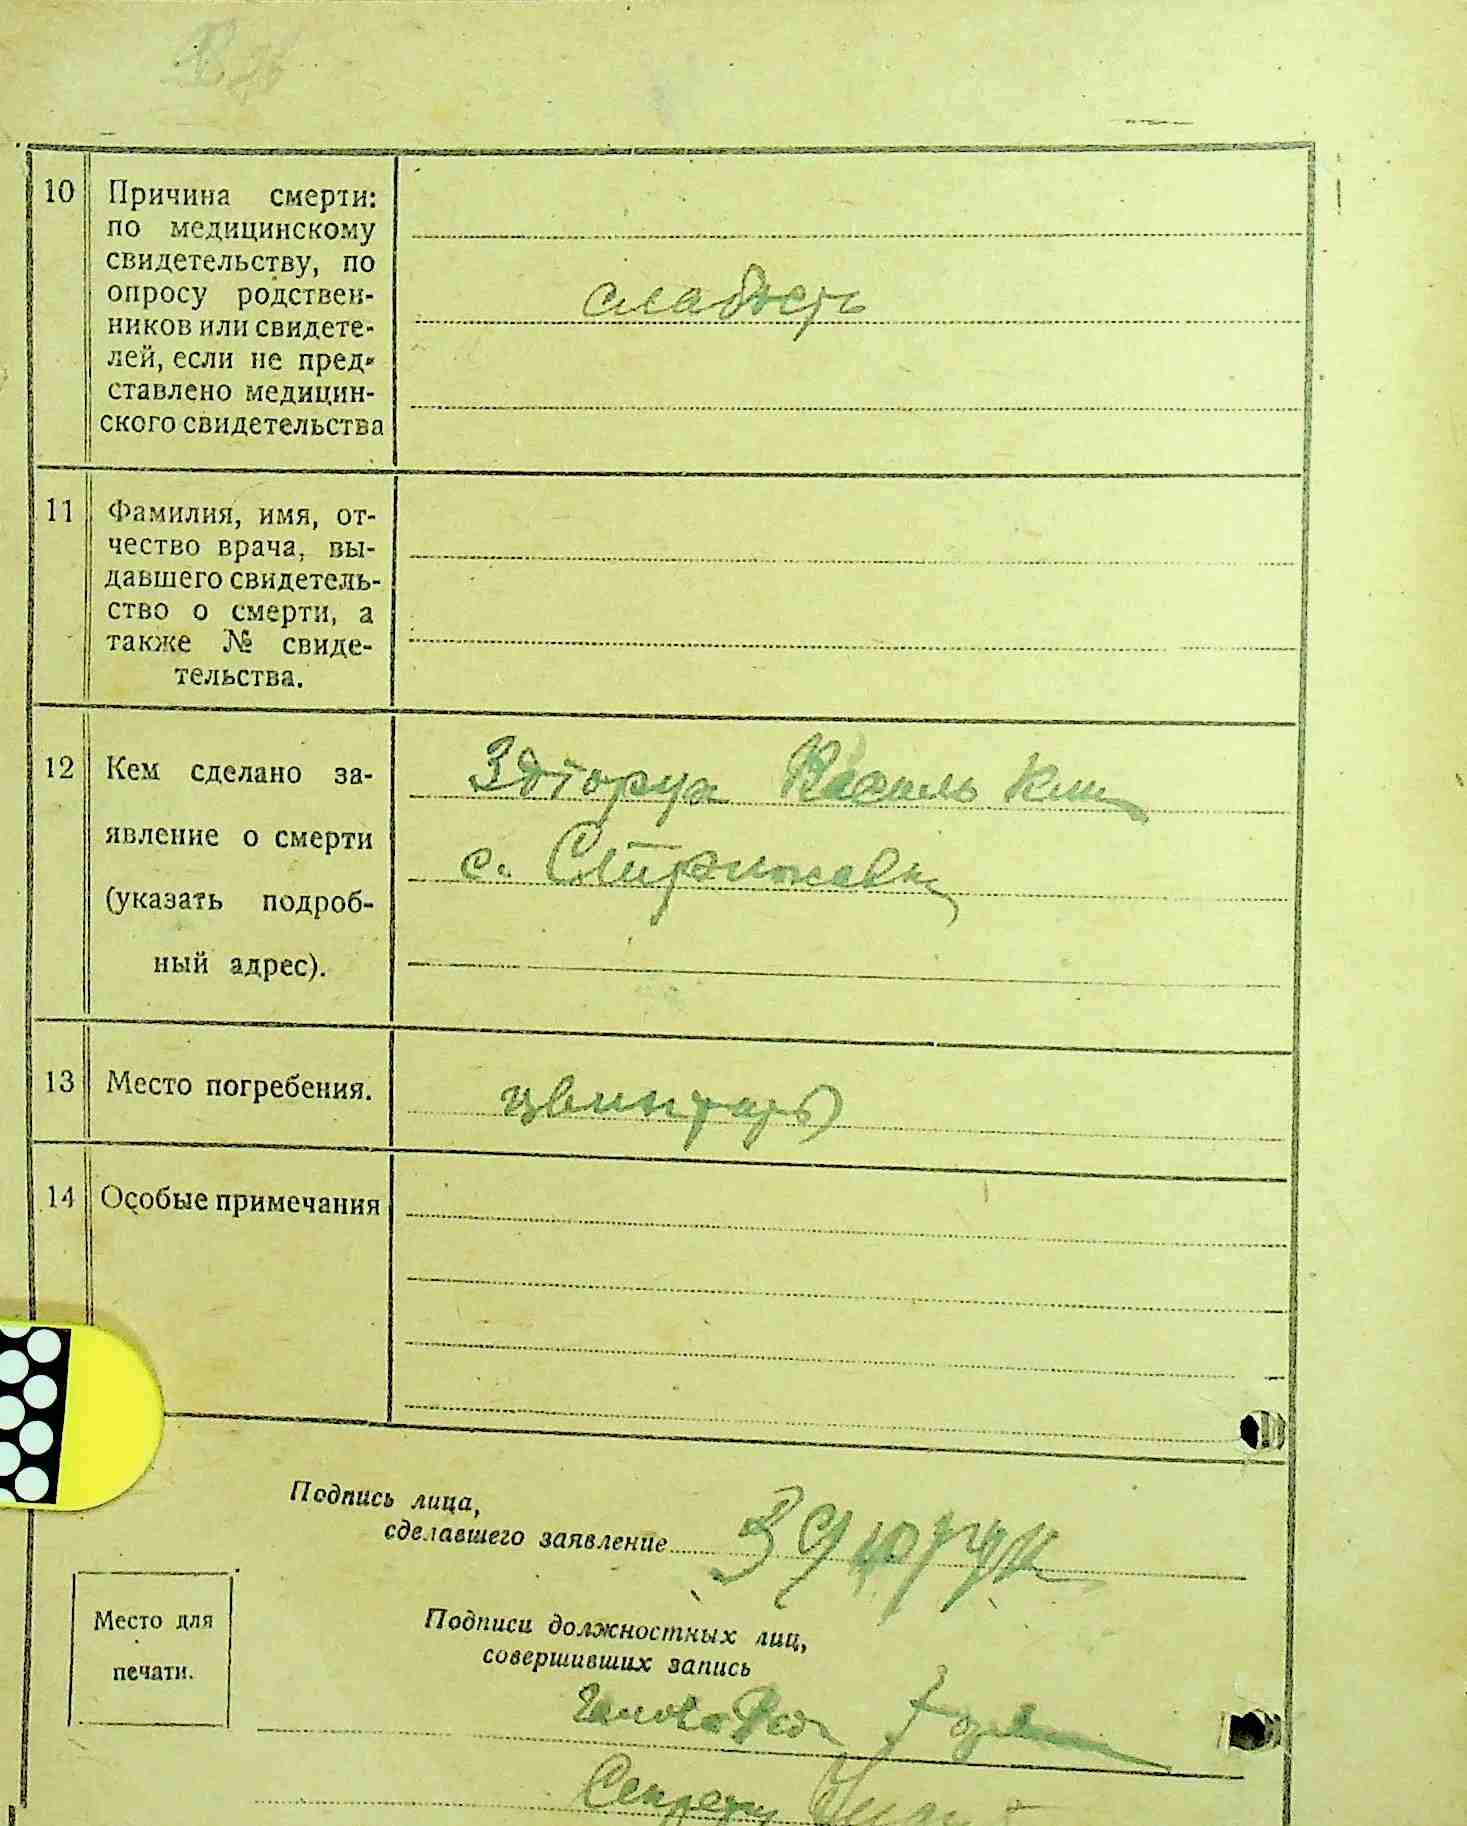 10 Причина смерти:
по медицинскому
свидетельству, по
опросу родствен-
ников или свидете-
лей, если не пред-
ставлено медицин-
ского свидетельства
слабость
11 Фамилия, имя, от-
чество врача, вы-
давшего свидетель-
ство о смерти, а
также № свиде-
тельства.
12 Кем сделано за-
явление о смерти
(указать подроб-
ный адрес).
Василь
с.
13 Место погребения.
цвинтарь
14 Особые примечания
Подпись лица,
сделавшего заявление
Место для
печати.
Подписи должностных лиц,
совершивших запись